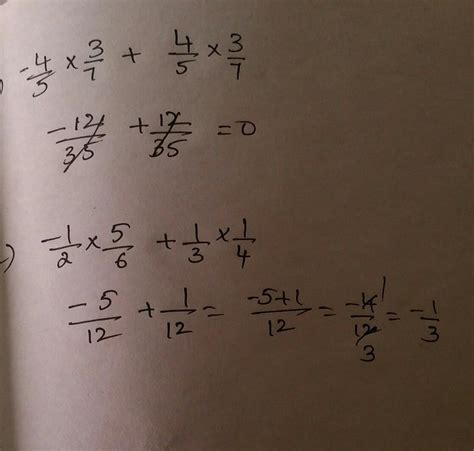 ) -4/5 × 3/7 + 4/5 × 3/7
-12/35 + 12/35 = 0
) -1/2 × 5/6 + 1/3 × 1/4
-5/12 + 1/12 = -5+1/12 = -4/12 1/3 = -1/3